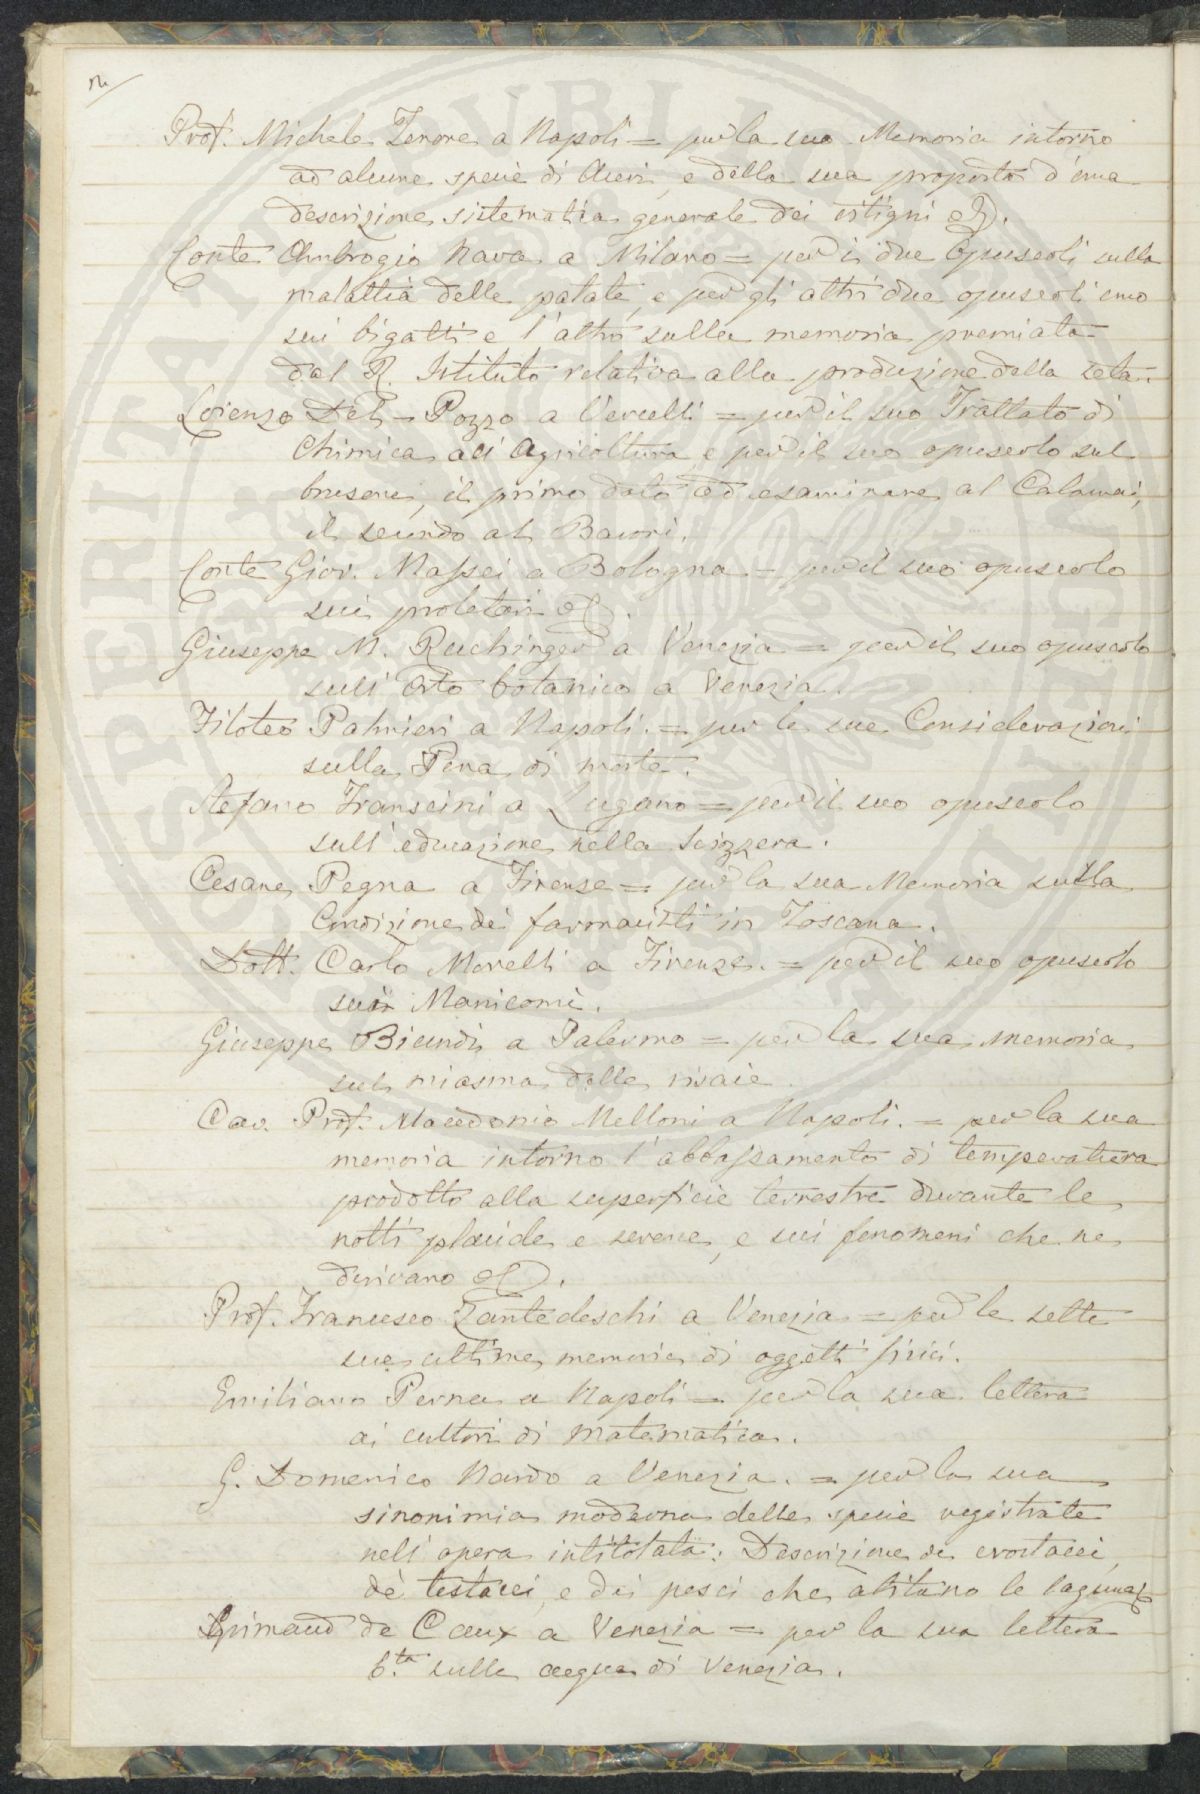 Prof. Michele Tenore a Napoli = per la sua Memoria intorno
ad alcune specie di Aceri, e della sua proposta d'una
descrizione sistematica generale dei vitigni &.
Conte Ambrogio Nava a Milano = per i due Opuscoli sulla
malattia delle patate, e per gli altri due opuscoli uno
sui bigatti e l'altro sulla memoria premiata
dal R. Istituto relativa alla produzione della seta.
Lorenzo Del-Pozzo a Vercelli = per il suo Trattato di
Chimica all' Agricoltura e per il suo opuscolo sul
brusone, il primo dato ad esaminare al Calamai,
il secondo al
Conte Giov. Massei a Bologna = per il suo opuscolo
sui proletari &.
Giuseppe M. Ruchinger a Venezia = per il suo opuscolo
sull' Orto botanico a Venezia.
Filoteo Palmieri a Napoli. = per le sue Considerazioni
sulla Pena di morte.
Stefano Franscini a Lugano = per il suo opuscolo
sull' educazione nella Svizzera.
Cesare Pegna a Firenze = per la sua Memoria sulla
Condizione dei farmacisti in Toscana.
Dott. Carlo Morelli a Firenze. = per il suo opuscolo
sui Manicomi.
Giuseppe Biundi a Palermo = per la sua memoria
sul miasma delle risaie.
Cav. Prof. Macedonio Melloni a Napoli. = per la sua
memoria intorno l'abbassamento di temperatura
prodotto alla superficie terrestre durante le
notti placide e serene, e sui fenomeni che ne
derivano &.
Prof. Francesco Zantedeschi a Venezia = per le sette
sue ultime memorie di oggetti fisici.
Emiliano Perna a Napoli = per la sua lettera
ai cultori di matematica.
G. Domenico Nardo a Venezia. = per la sua
sinonimia moderna delle specie registrate
nell' opera intitolata: Descrizione de crostacei,
de' testacei, e dei pesci che abitano le lagune &
Grimaud de Caux a Venezia = per la sua lettera
6.ta sulle acque di Venezia.
PROSPERITATI PUBLICAE AUGENDAE